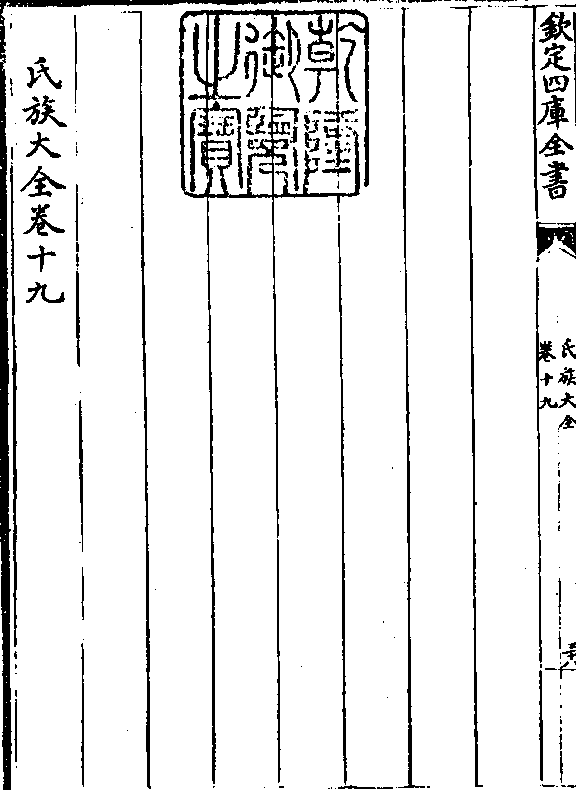 欽定四庫全書
氏族大全
卷十九
乾隆
御覽
之寶
氏族大全卷十九